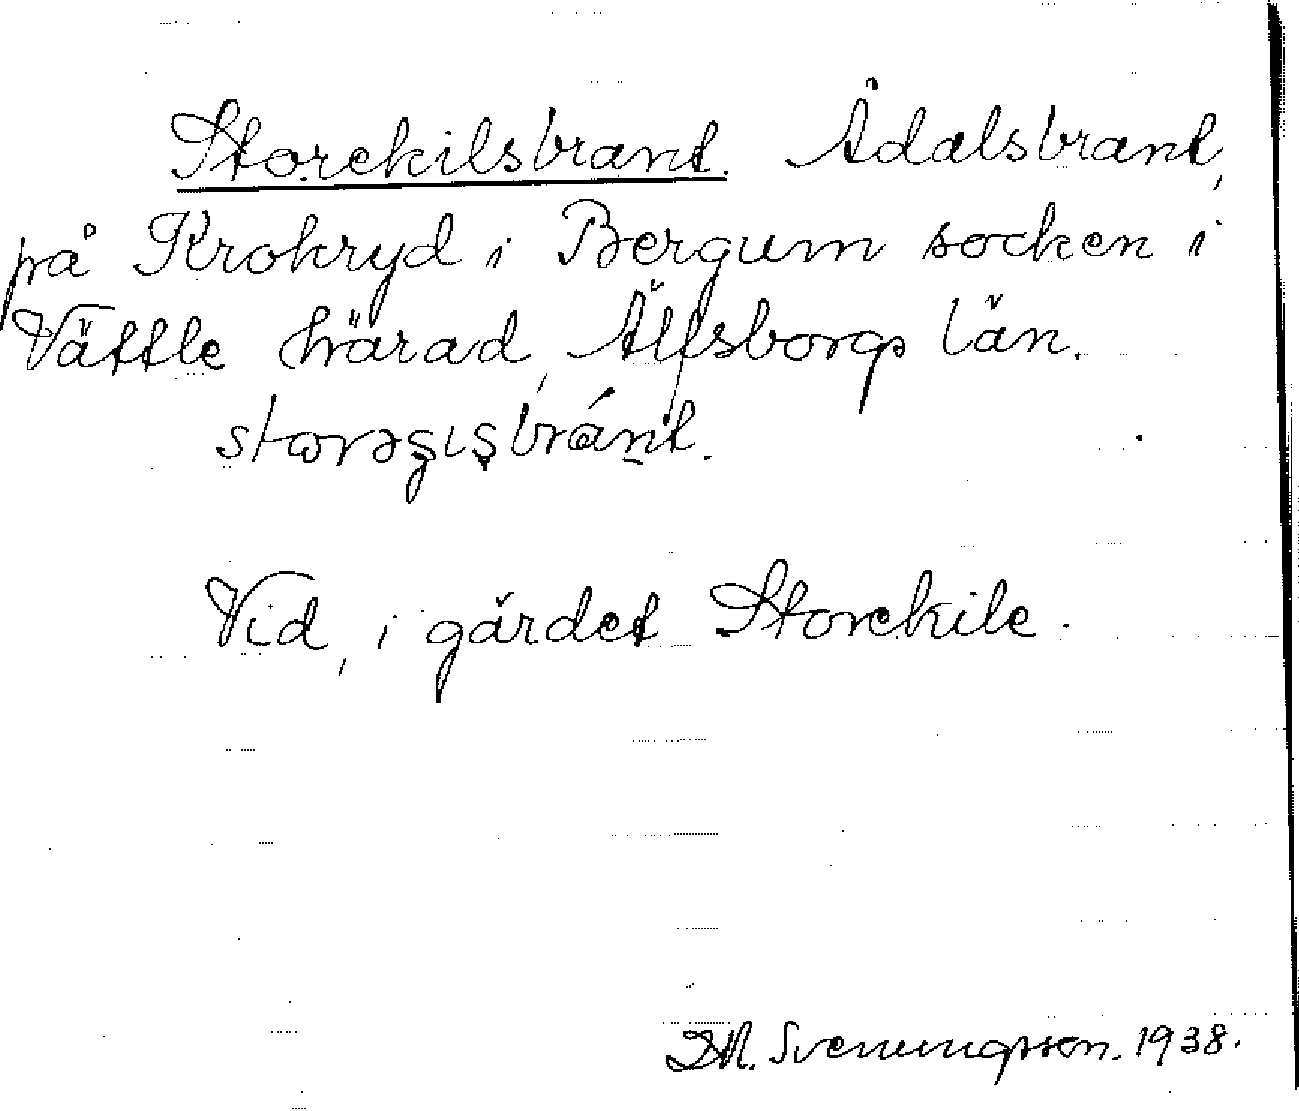 Storekilsbrant. Ådalsbrant,
på Krokryd i Bergum socken i
Vättle härad, Älfsborgs län.
Vid, i gärdet Storekile.
D.M. Svenungsson. 1938.